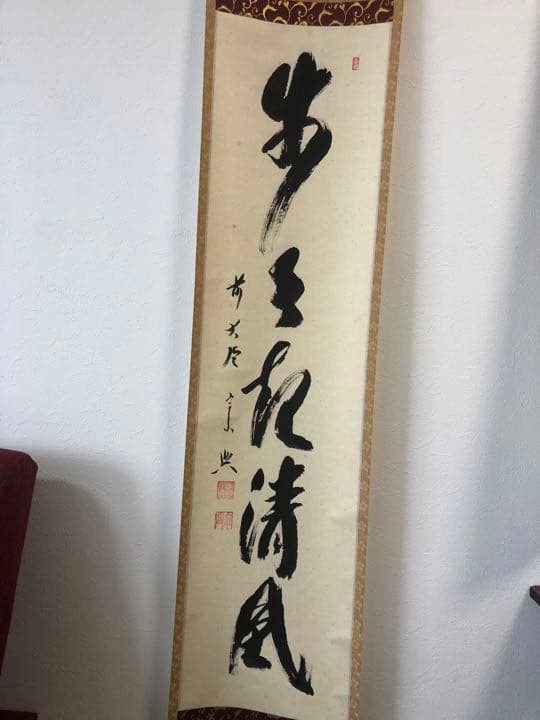 歩々起清風
前大徳宗興